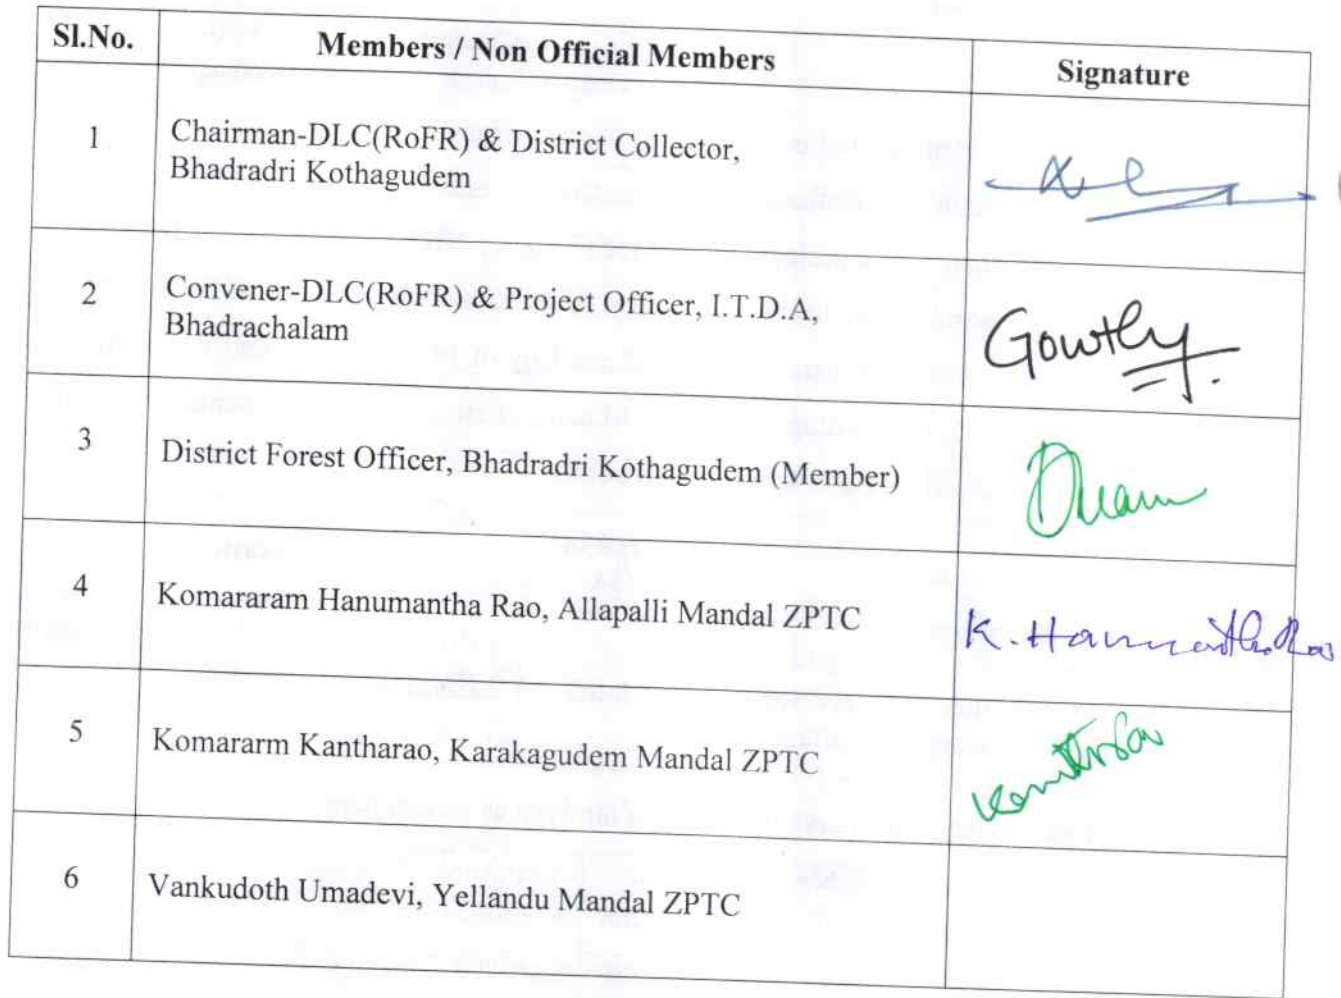 Sl.No. Members / Non Official Members Signature
1 Chairman-DLC(RoFR) & District Collector,
Bhadradri Kothagudem
2 Convener-DLC(RoFR) & Project Officer, I.T.D.A,
Bhadrachalam
Gowthy
3 District Forest Officer, Bhadradri Kothagudem (Member)
4 Komararam Hanumantha Rao, Allapalli Mandal ZPTC
K. 
5 Komararm Kantharao, Karakagudem Mandal ZPTC
6 Vankudoth Umadevi, Yellandu Mandal ZPTC